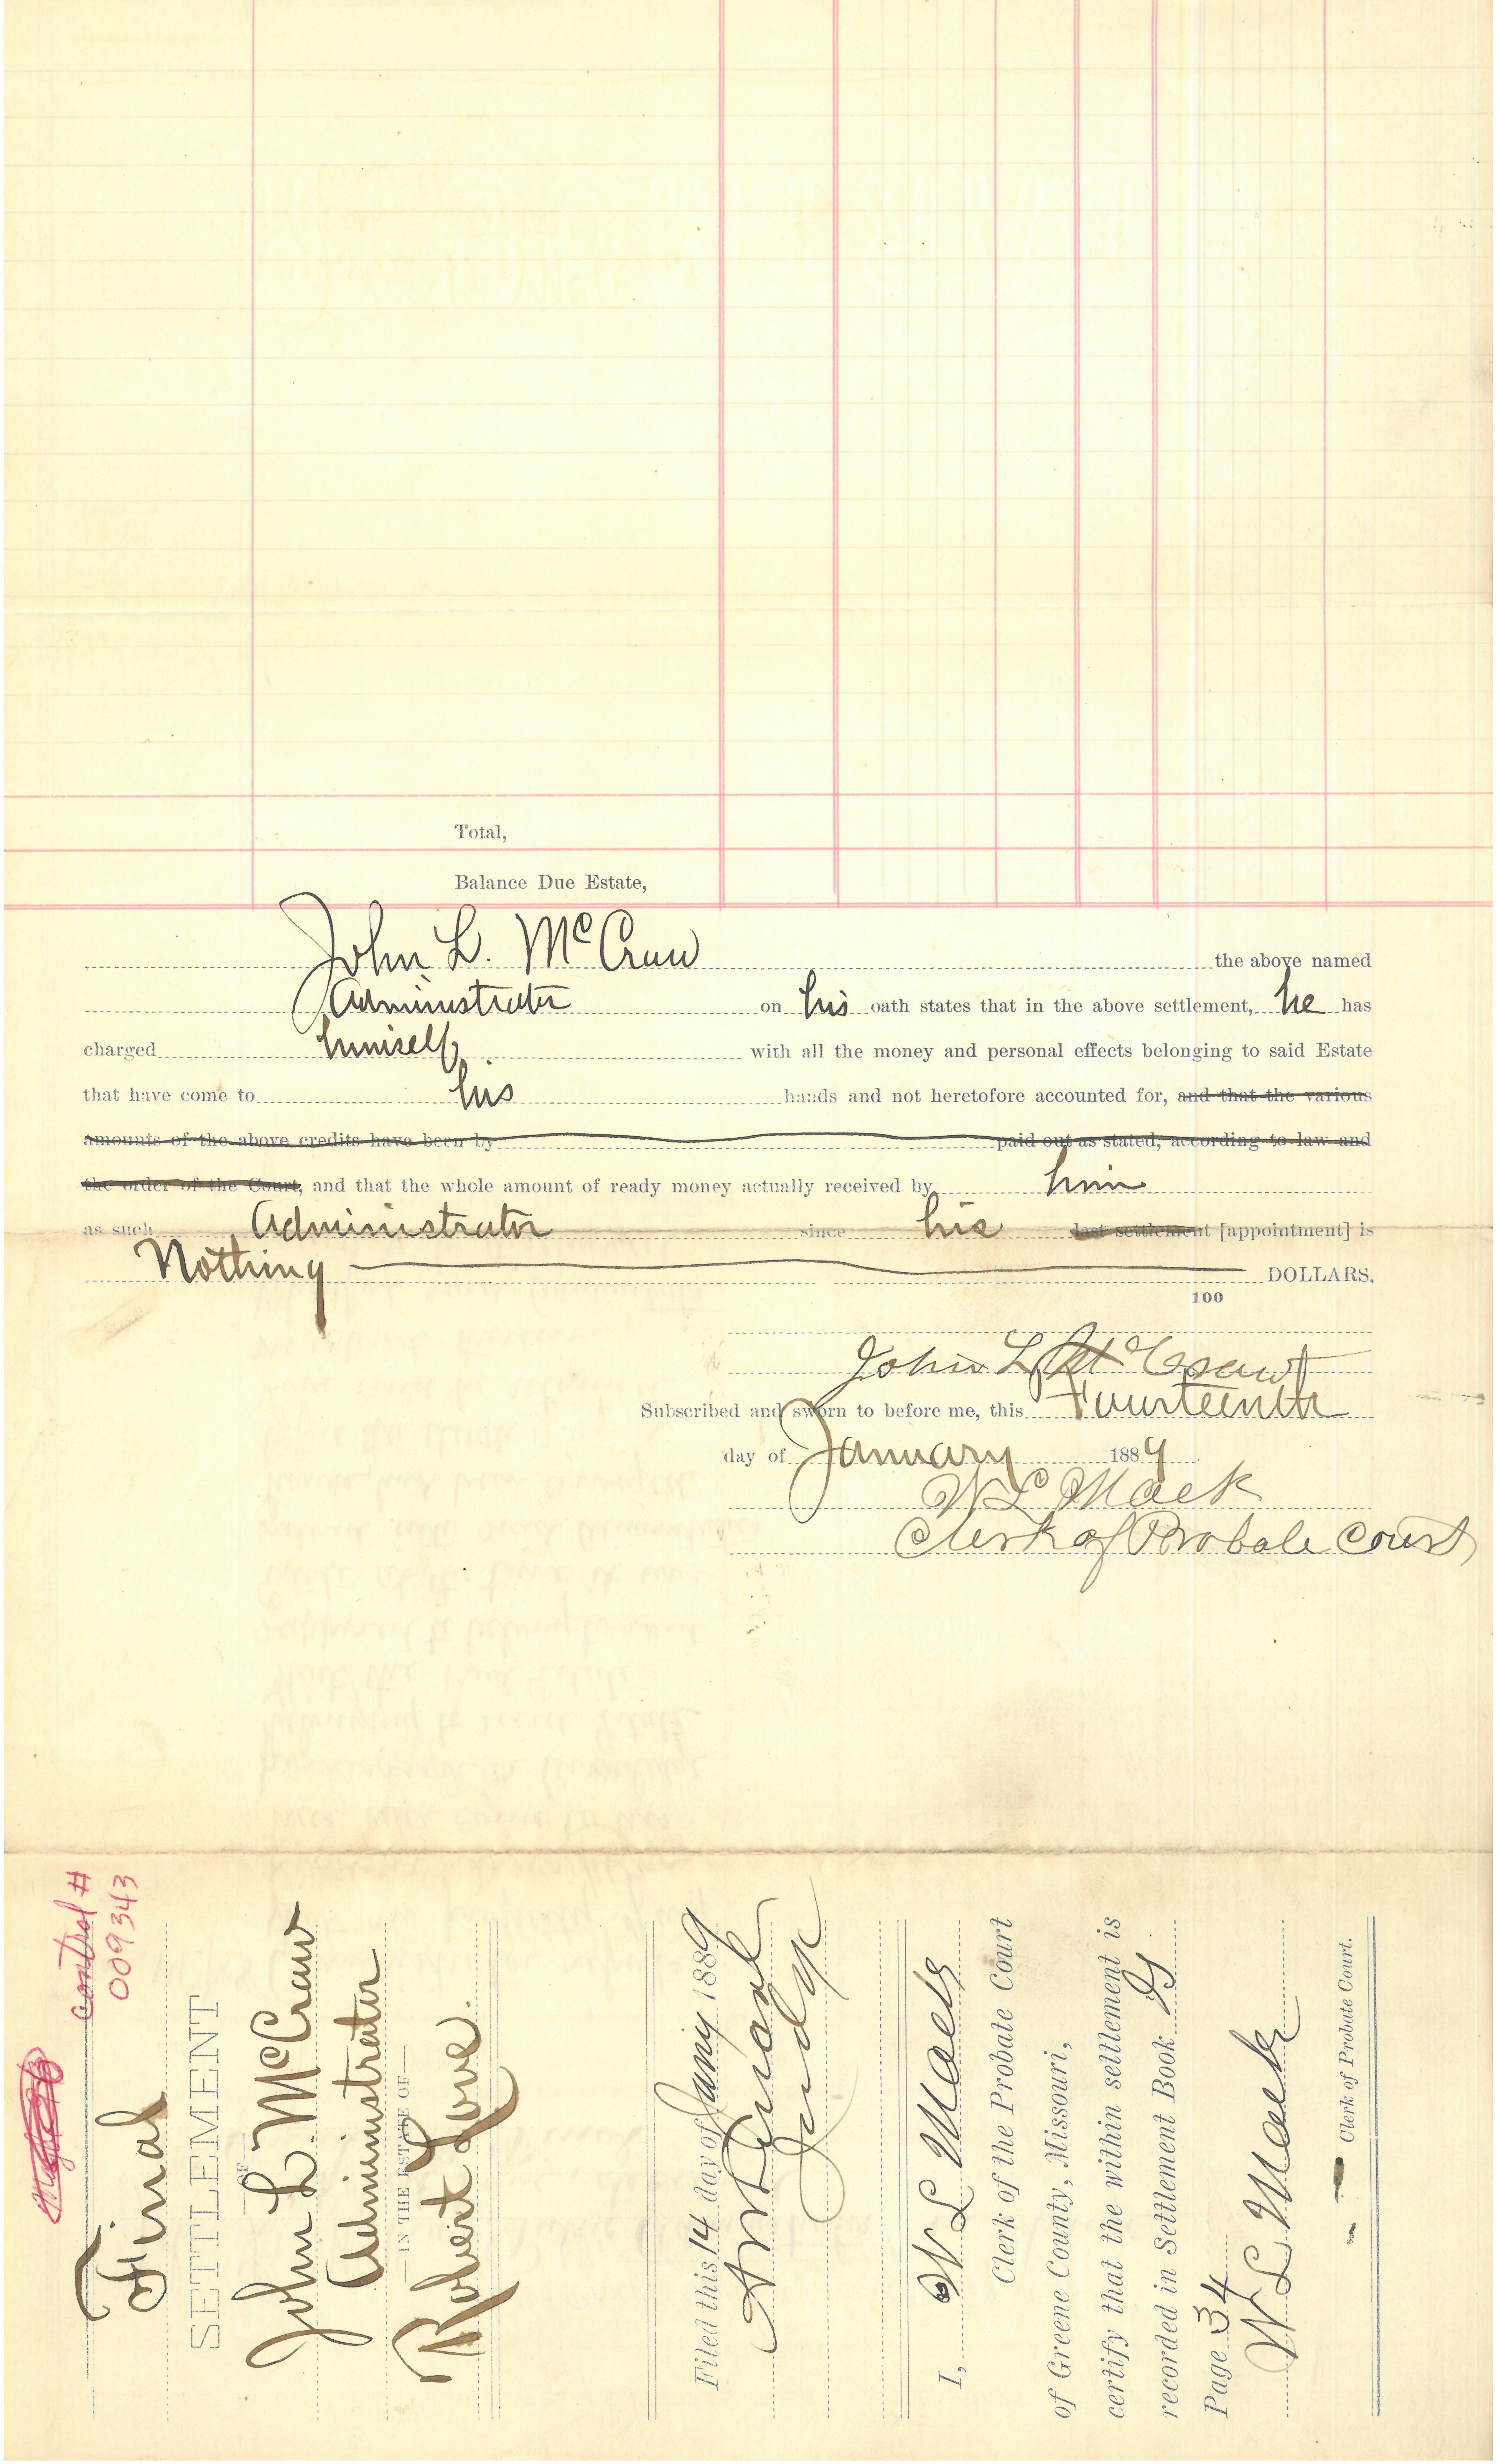 Total,
Balance Due Estate,
John L. McCraw the above named
Administrator on his oath states that in the above settlement, he has
charged himself with all the money and personal effects belonging to said Estate
that have come to his hands and not heretofore accounted for, and that the various
amounts of the above credits have been by paid out as stated, according to law and
the order of the Court, and that the whole amount of ready money actually received by him
as such Administrator since his last settlement [appointment] is
Nothing DOLLARS.
100
John L McCraw
Subscribed and sworn to before me, this Fourteenth
day of January 1889
W L Mack
Clerk of Probate Court
Control #
009343
Final
SETTLEMENT
OF
John L. McCraw
Administrator
IN THE ESTATE OF
Robert Love.
Filed this 14 day of Jany 1889
Judge
I, W L Mack
Clerk of the Probate Court
of Greene County, Missouri,
certify that the within settlement is
recorded in Settlement Book
Page 34
W L Mack
Clerk of Probate Court.